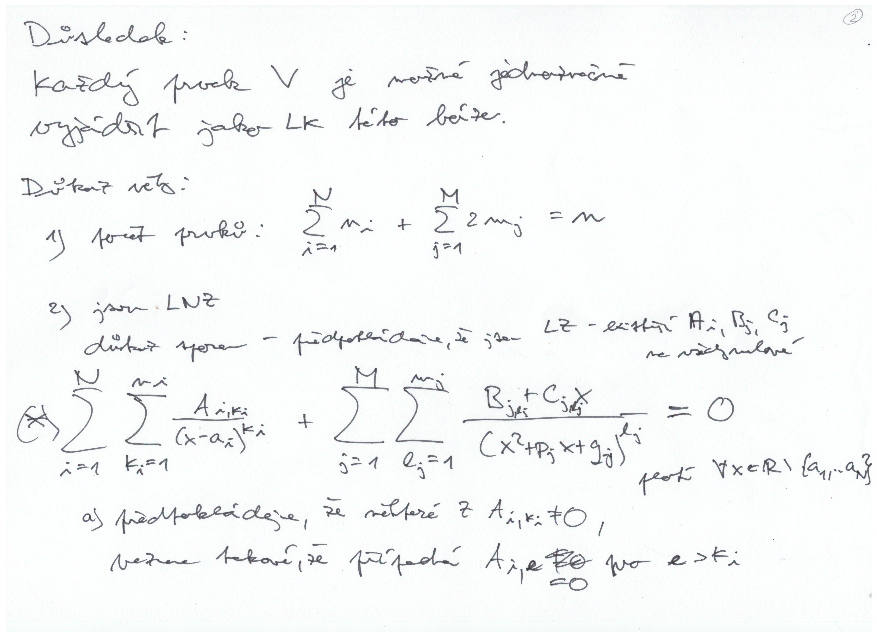 ②
Důsledek:
Každý prvek V je možné jednoznačně
vyjádřit jako LK této báze.
Důkaz věty:
1) počet prvků: \sum_{i=1}^{N} n_i + \sum_{j=1}^{M} 2 m_j = n
2) jsou LNZ
důkaz sporem - předpokládejme, že jsou LZ - existují A_i, B_j, C_j
ne všechny nulové
(*) \sum_{i=1}^{N} \sum_{k_i=1}^{n_i} \frac{A_{i,k_i}}{(x-a_i)^{k_i}} + \sum_{j=1}^{M} \sum_{l_j=1}^{m_j} \frac{B_{j,l_j} + C_{j,l_j} x}{(x^2+p_j x+q_j)^{l_j}} = 0
platí ∀x∈ℝ\{a_1,...a_N}
a) předpokládejme, že některé z A_{i,k_i} ≠ 0,
vezměme takové, že případná A_{i,l} = 0 pro l > k_i